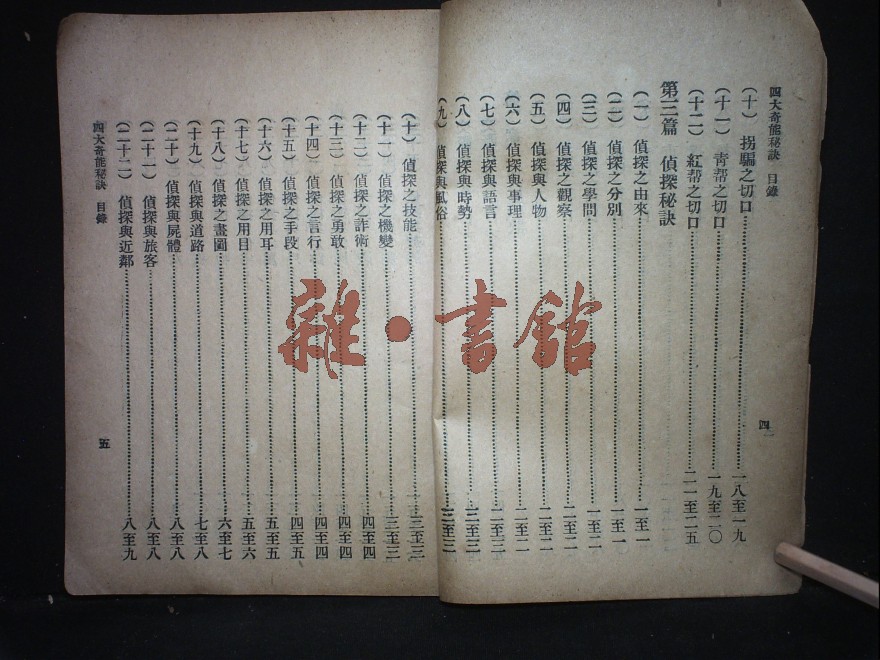 四大奇能秘訣 目錄
四
(十) 拐騙之切口 一八至一九
(十一) 靑帮之切口 一九至二〇
(十二) 紅帮之切口 二一至二五
第三篇 偵探秘訣
(一) 偵探之由來 一至一
(二) 偵探之分別 一至一
(三) 偵探之學問 一至二
(四) 偵探之觀察 二至二
(五) 偵探與人物 二至二
(六) 偵探與事理 二至二
(七) 偵探與語言 二至三
(八) 偵探與時勢 三至三
(九) 偵探與風俗 三至三
(十) 偵探之技能 三至三
(十一) 偵探之機變 三至三
(十二) 偵探之詐術 四至四
(十三) 偵探之勇敢 四至四
(十四) 偵探之言行 四至四
(十五) 偵探之手段 四至五
(十六) 偵探之用耳 五至五
(十七) 偵探之用目 五至六
(十八) 偵探之畫圖 六至七
(十九) 偵探與道路 七至八
(二十) 偵探與屍體 八至八
(二十一) 偵探與旅客 八至八
(二十二) 偵探與近鄰 八至九
四大奇能秘訣 目錄
五
雜·書館